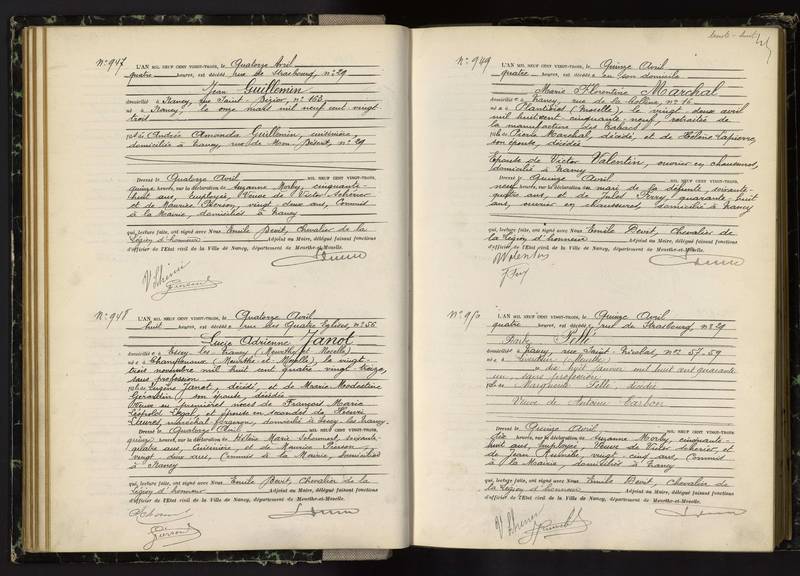 N° 947
L'AN MIL NEUF CENT VINGT-TROIS, le Quatorze Avril
quatre heures, est décédé rue de Strasbourg, n° 29
Jean Guillemin
domicilié à Nancy, rue Saint-Dizier, n° 153
né à Nancy, le onze mars mil neuf cent vingt
trois
Amanda Guillemin, cuisinière,
domiciliée à Nancy, rue de Mon Désert, n° 29
Dressé le Quatorze Avril MIL NEUF CENT VINGT-TROIS,
quinze heures, sur la déclaration de Suzanne Morby, cinquante-
huit ans, employée, Veuve de Victor
et de Maurice Pierson, vingt deux ans, Commis
à la Mairie, domiciliés à Nancy
qui, lecture faite, ont signé avec Nous Emile Devit, Chevalier de la
Légion d'honneur Adjoint au Maire, délégué faisant fonctions
d'officier de l'Etat civil de la Ville de Nancy, département de Meurthe-et-Moselle.
N° 948
L'AN MIL NEUF CENT VINGT-TROIS, le Quatorze Avril
huit heures, est décédée rue des Quatre Eglises, n° 56
Lucie Adrienne Janot
domiciliée à Essey les Nancy (Meurthe et Moselle)
née à Champenoux (Meurthe et Moselle), le vingt-
trois novembre mil huit cent quatre vingt treize,
sans profession
fille de Eugène Janot, décédé, et de Marie Modestine
son épouse, décédée
Veuve en premières noces de François Marie
Léopold et épouse en secondes de Henri
maréchal ferrant, domicilié à Essey les Nancy.
Dressé le Quatorze Avril MIL NEUF CENT VINGT-TROIS,
quinze heures, sur la déclaration de Hélène Marie soixante-
quatre ans, Cuisinière, et de Maurice Pierson,
vingt deux ans, Commis de la Mairie, domiciliés
à Nancy
qui, lecture faite, ont signé avec Nous Emile Devit, Chevalier de la
Légion d'honneur Adjoint au Maire, délégué faisant fonctions
d'officier de l'Etat civil de la Ville de Nancy, département de Meurthe-et-Moselle.
Pierson
N° 949
L'AN MIL NEUF CENT VINGT-TROIS, le Quinze Avril
quatre heures, est décédée en son domicile
Marie Florentine Marchal
domiciliée à Nancy, rue de la Colline, n° 16
née à Plantières (Moselle), le vingt deux avril
mil huit cent cinquante neuf, retraitée de
la manufacture des tabacs
fille de Pierre Marchal, décédé, et de Hélène Lapierre,
son épouse, décédée
Epouse de Victor Valentin, ouvrier en chaussures,
domicilié à Nancy
Dressé le Quinze Avril MIL NEUF CENT VINGT-TROIS,
neuf heures, sur la déclaration du mari de la défunte, soixante-
quatre ans, et de Jules Ferry, quarante huit
ans, ouvrier en chaussures, domicilié à Nancy
qui, lecture faite, ont signé avec Nous Emile Devit, Chevalier de
la Légion d'honneur Adjoint au Maire, délégué faisant fonctions
d'officier de l'Etat civil de la Ville de Nancy, département de Meurthe-et-Moselle.
Valentin
N° 950
L'AN MIL NEUF CENT VINGT-TROIS, le Quinze Avril
quatre heures, est décédée rue de Strasbourg, n° 29
Barbe Pelle
domiciliée à Nancy, rue Saint-Nicolas, n°s 57-59
née à (Moselle)
le dix huit janvier mil huit cent quarante
un, sans profession
fille de Marguerite Pelle, décédée
Veuve de Antoine Carbon
Dressé le Quinze Avril MIL NEUF CENT VINGT-TROIS,
dix heures, sur la déclaration de Suzanne Morby, cinquante-
huit ans, employée, Veuve de Victor et
de Jean vingt-cinq ans, Commis
à la Mairie, domiciliés à Nancy
qui, lecture faite, ont signé avec Nous Emile Devit, Chevalier de
la Légion d'honneur Adjoint au Maire, délégué faisant fonctions
d'officier de l'Etat civil de la Ville de Nancy, département de Meurthe-et-Moselle.